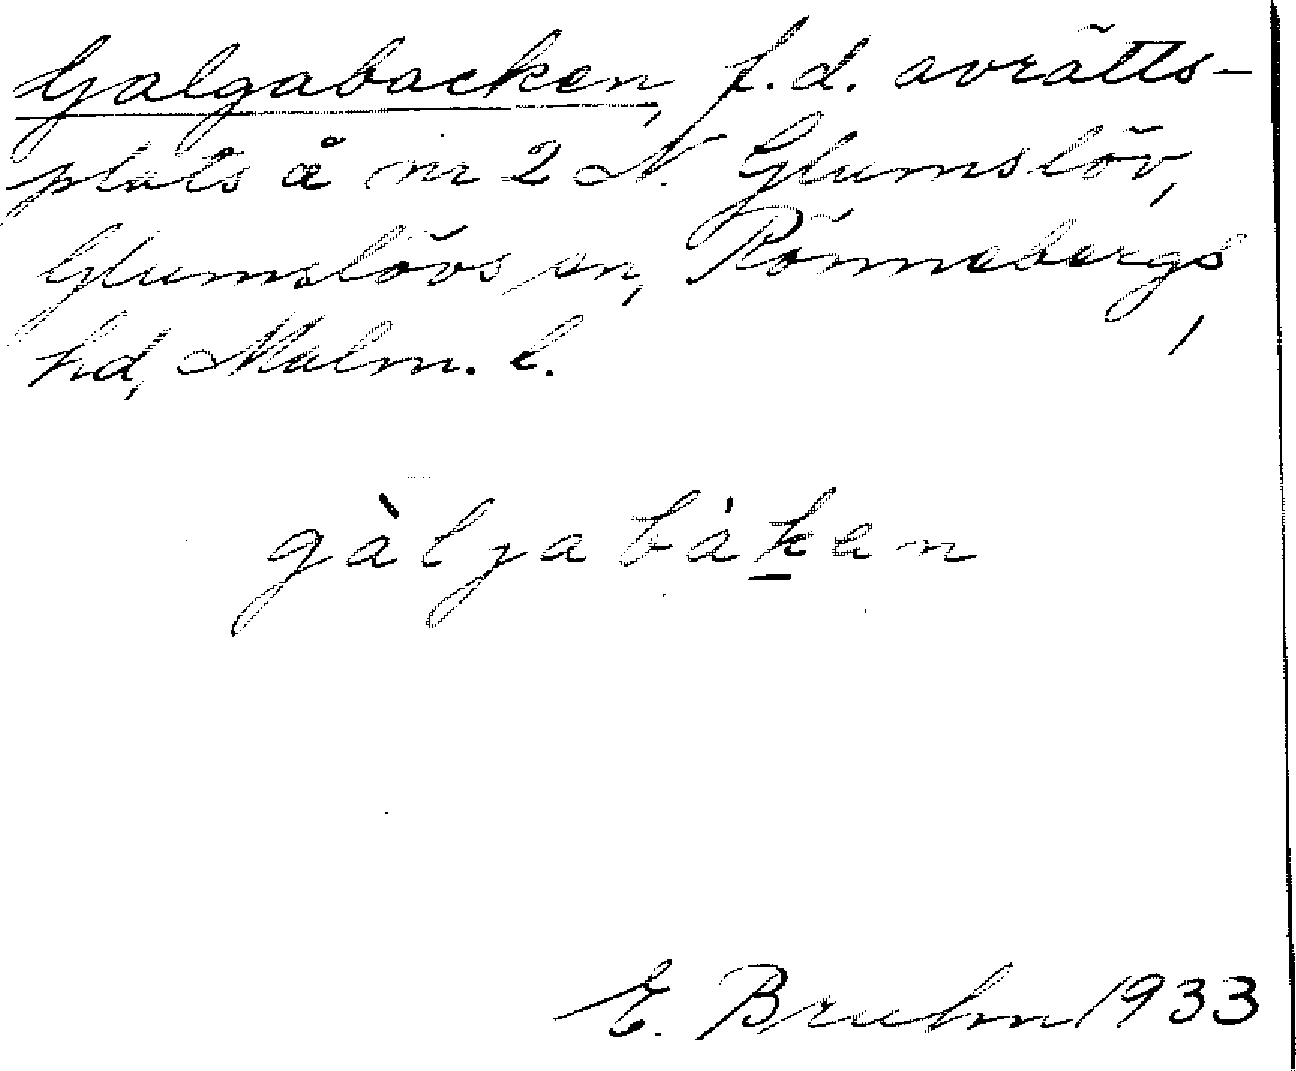 Galgabacken, f.d. avrätts-
plats å nr 2 N. Glumslöv,
Glumslövs sn, Rönnebergs
hd, Malm. l.
gàlgabák̲en
E. Bruhn 1933